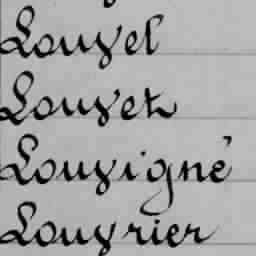 Louvel
Louvet
Louvigné
Louvrier